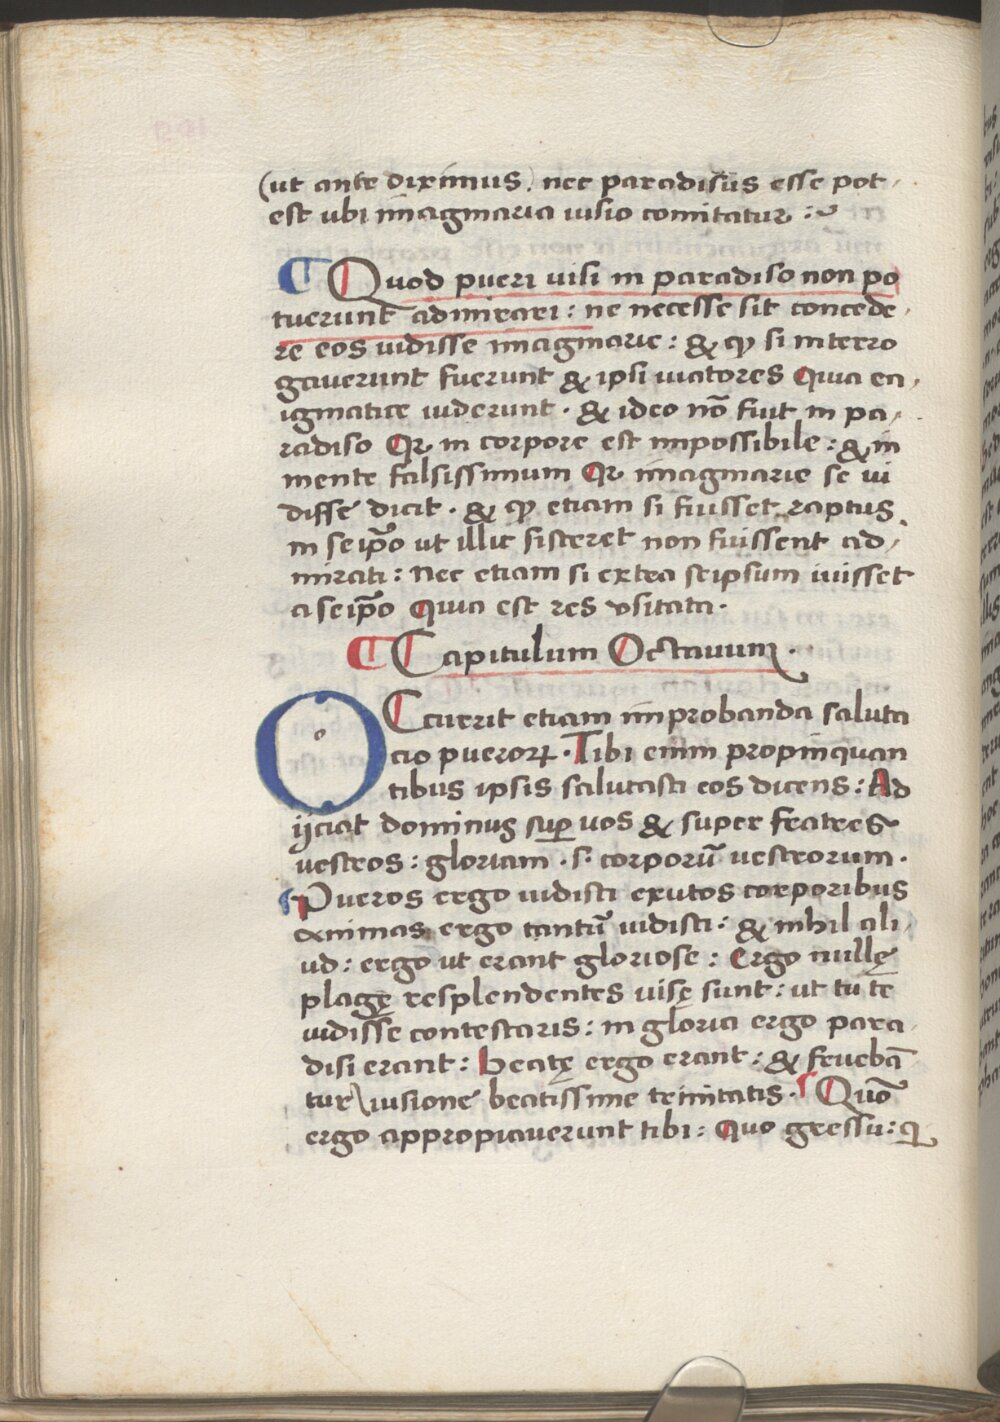 (ut ante diximus) nec paradisus esse pot-
est ubi imaginaria uisio comitatur :~
¶ Quod pueri uisi in paradiso non po
tuerunt admirari: ne necesse sit concede-
re eos uidisse imaginarie: & ꝙ si interro
gauerunt fuerunt & ipsi uiatores Quia en-
igmatice uiderunt. & ideo nō fuit in pa-
radiso Qꝛ in corpore est impossibile: & in
mente falsissimum Qꝛ imaginarie se ui
disse dicit. & ꝙ etiam si fuisset raptus
in seip̄o ut illic sisteret non fuissent ad-
mirati: Nec etiam si extra seipsum iuisset
a seip̄o Quia est res vsitata.
¶ Capitulum Octauum.
OCcurrit etiam improbanda saluta
cio pueroꝝ. Tibi enim propinquan
tibus ipsis salutasti eos dicens: Ad
ijciat dominus suꝑ uos & super fratres
uestros: gloriam .s. corporū uestrorum.
¶ Pueros ergo uidisti exutos corporibus
animas ergo tantū uidisti: & nihil ali-
ud: ergo ut erant gloriose: Ergo nullę
plagę resplendentes uisę sunt: ut tu te
uidisse contestaris: in gloria ergo para-
disi erant: Beatę ergo erant: & fruebā
tur uisione beatissime trinitatis. ¶ Quō
ergo appropiauerunt tibi: Quo gressu: